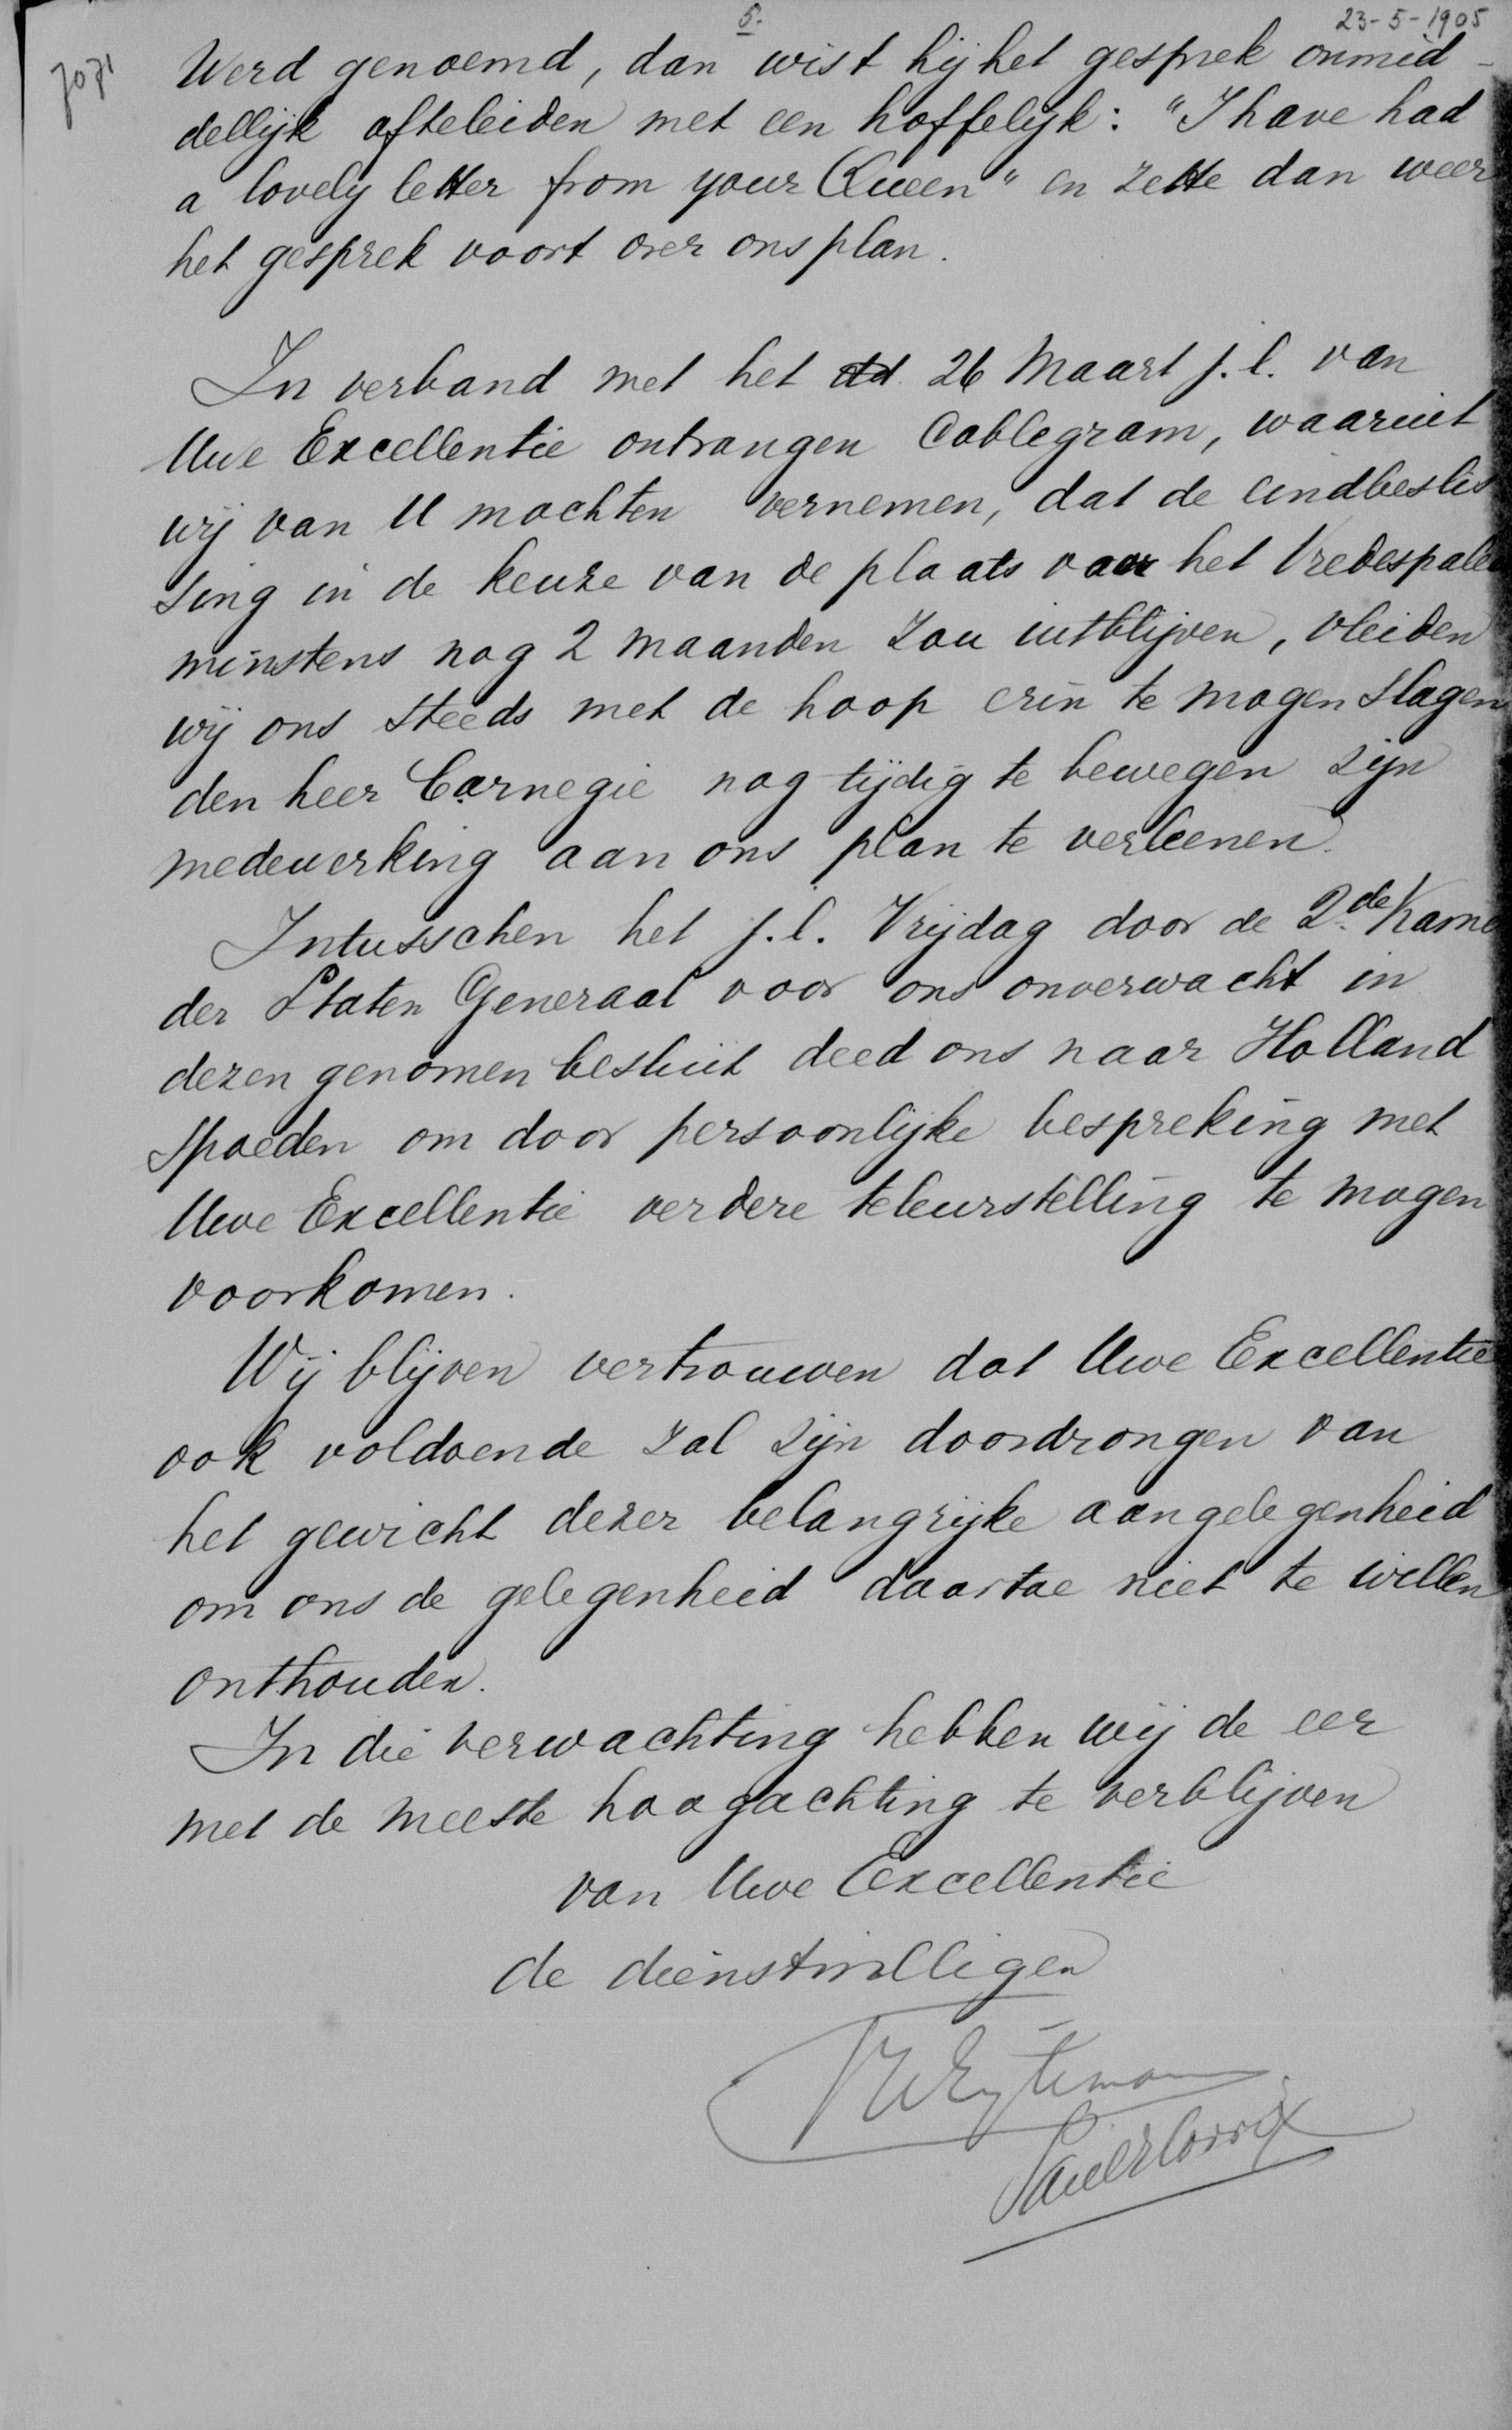 5.
23-5-1905
Werd genoemd, dan wist hij het gesprek onmid-
dellijk afteleiden met een hoffelijk: "I have had
a lovely letter from your Queen" en zette dan weer
het gesprek voort over ons plan.
In verband met het dd. 26 Maart j.l. van
Uwe Excellentie ontvangen Cablegram, waaruit
wij van U mochten vernemen, dat de eindbeslis
sing in de keuze van de plaats voor het Vredespaleis
minstens nog 2 maanden zou uitblijven, vleiden
wij ons steeds met de hoop erin te mogen slagen
den heer Carnegie nog tijdig te bewegen zijn
medewerking aan ons plan te verleenen.
Intusschen het j.l. Vrijdag door de 2de Kamer
der Staten Generaal voor ons onverwacht in
dezen genomen besluit deed ons naar Holland
spoeden om door persoonlijke bespreking met
Uwe Excellentie verdere teleurstelling te mogen
voorkomen.
Wij blijven vertrouwen dat Uwe Excellentie
ook voldoende zal zijn doordrongen van
het gewicht dezer belangrijke aangelegenheid
om ons de gelegenheid daartoe niet te willen
onthouden.
In die verwachting hebben wij de eer
met de meeste hoogachting te verblijven
van Uwe Excellentie
de dienstwilligen